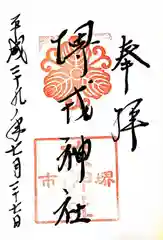 奉拝
堺戎神社
平成二十九年七月二十七日
堺
市